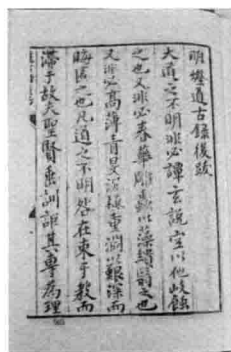 明燈道古錄後跋
大道之不明非必譚玄說空以他岐蝕
之也又非必春華雕蟲以藻繢翳之也
又非必高薄青旻深極重淵以艱深而
晦匿之也凡道之不明咎在束于教而
滯于故夫聖賢垂訓詎其專為理